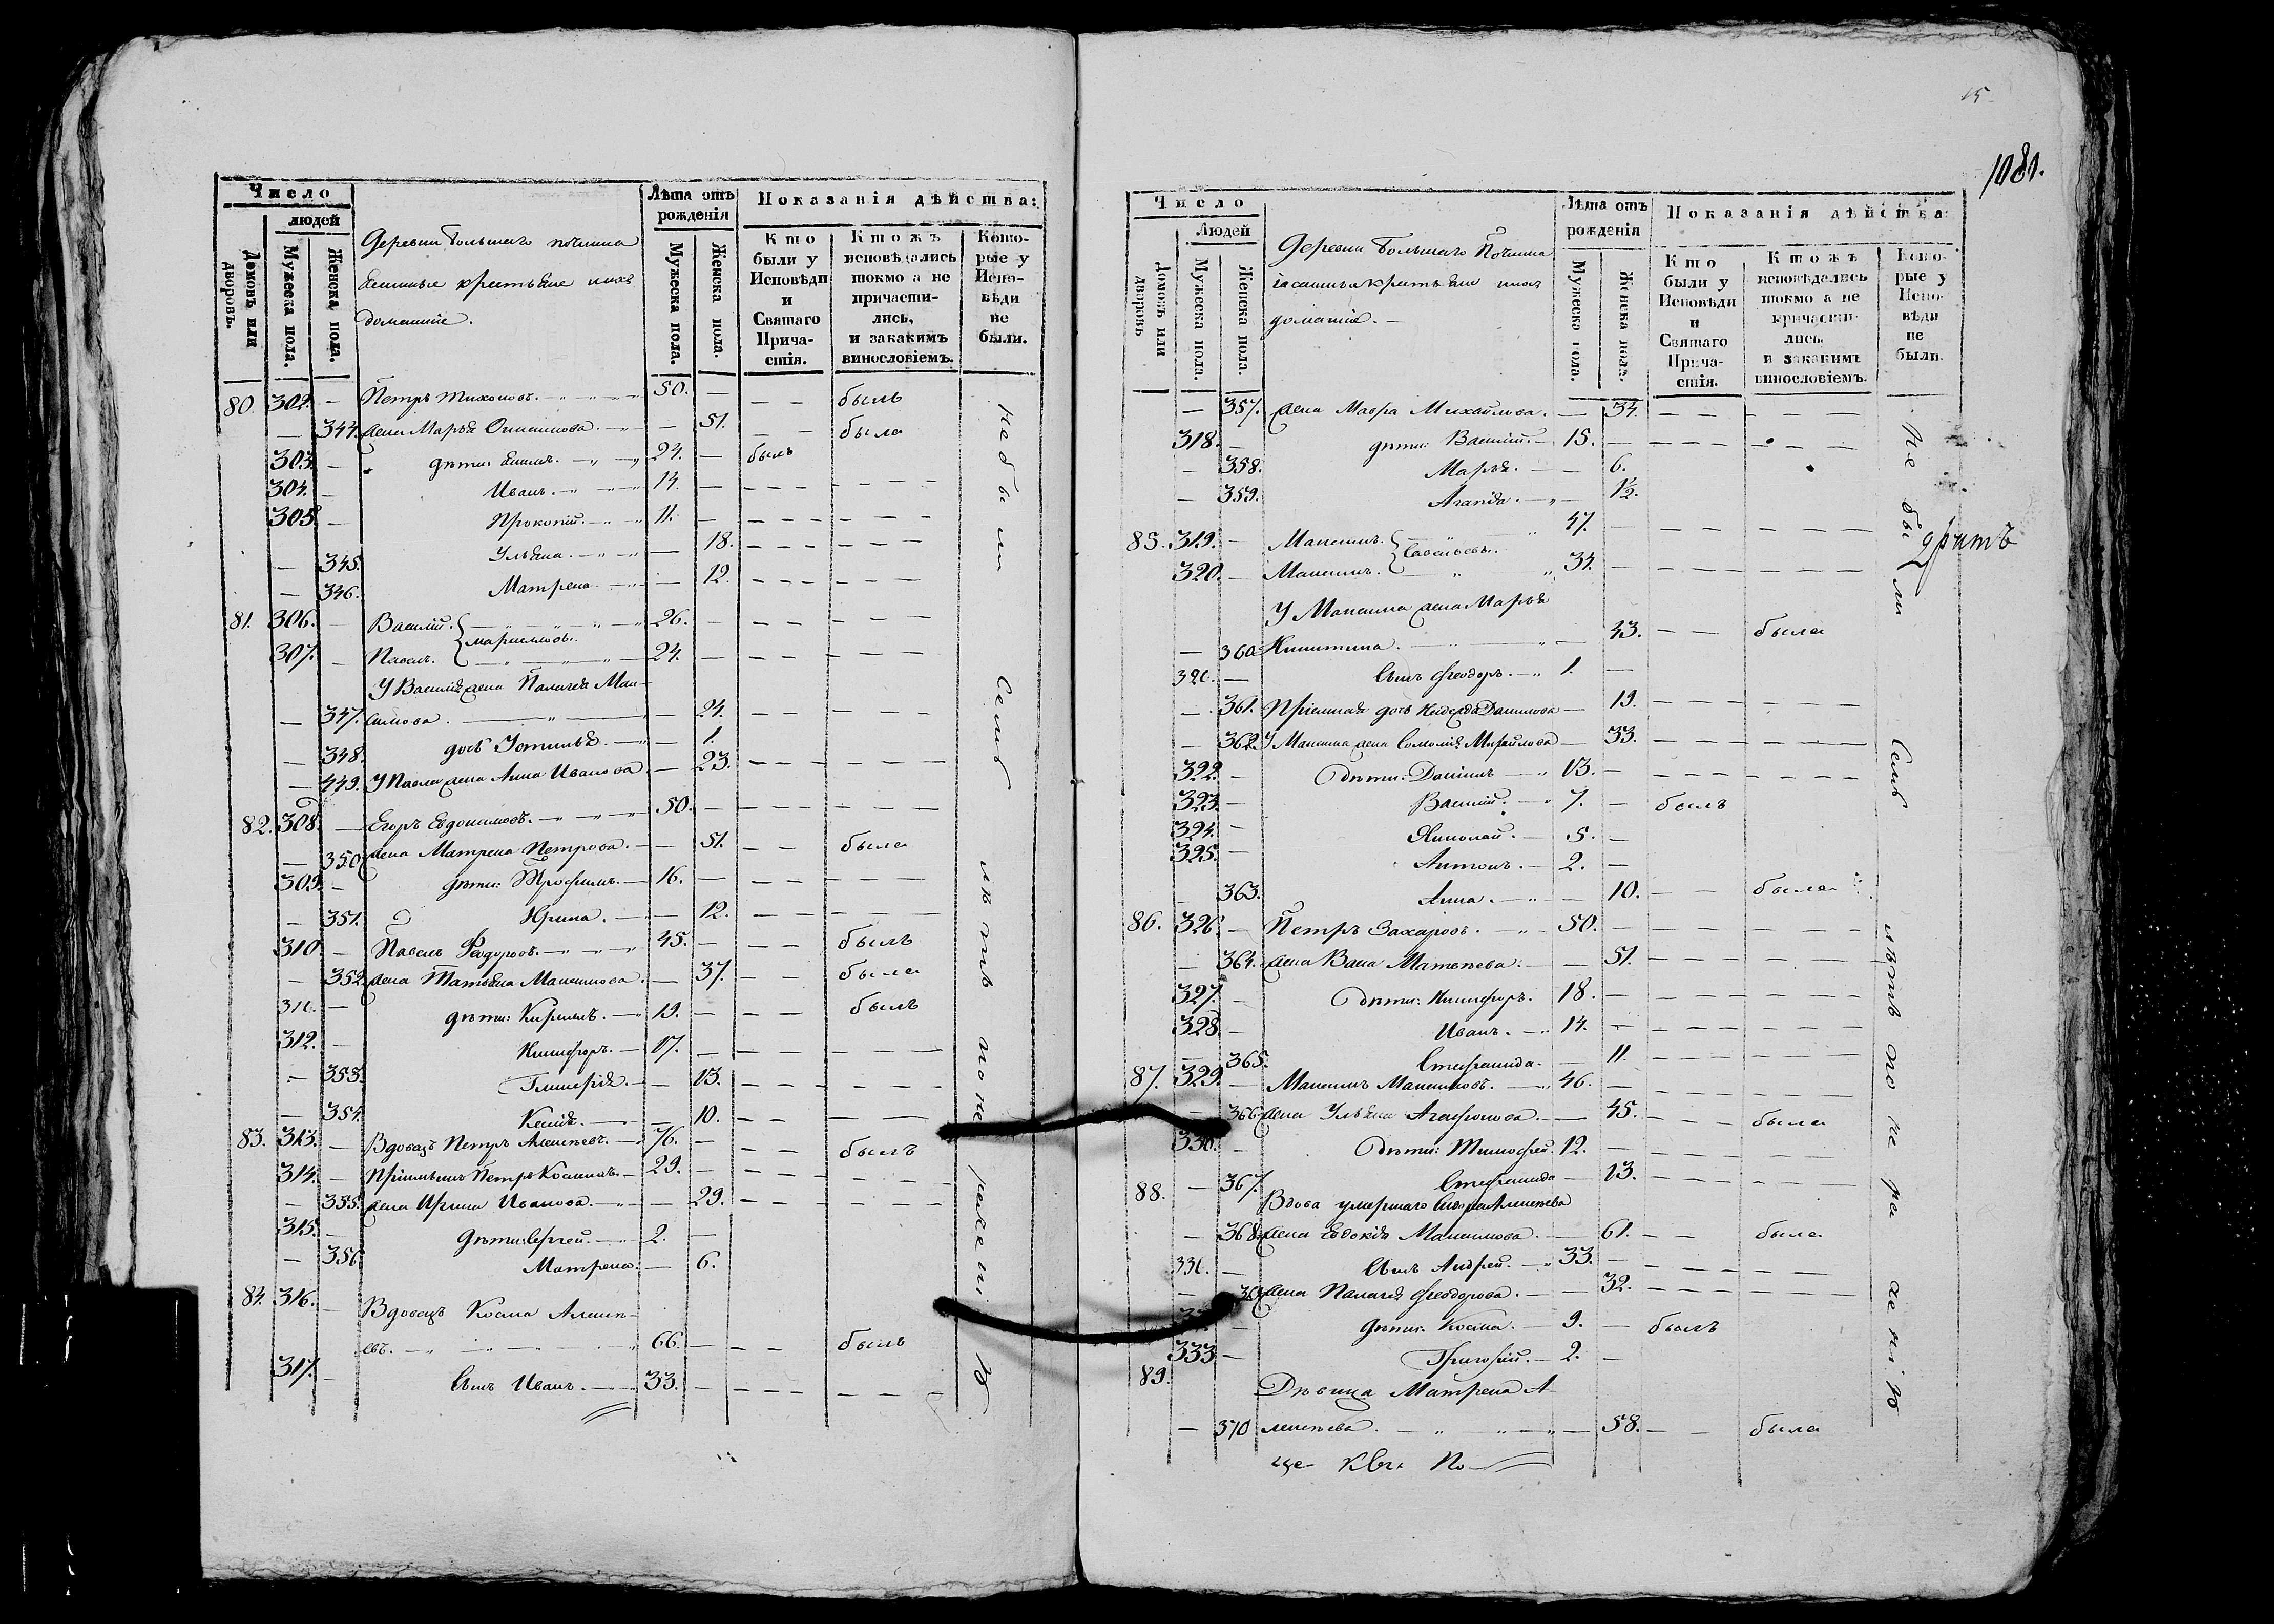 Число
людей
Домовъ или дворовъ.
Мужеска пола.
Женска пола.
Деревни Большаго починка
крестьяне ихъ
домашніе.
Лѣта отъ рожденія
Мужеска пола.
Женска пола.
Показанія дѣйства:
Кто были у Исповѣди и Святаго Причастія.
Ктожъ исповѣдались токмо а не причастились, и закакимъ винословіемъ.
Которые у Исповѣди не были.
80. 302. — Петръ Тихоновъ. 50. — былъ
— 344. жена Марья — 51. — — была
303. — дѣти: 24. — былъ
304. — Иванъ. 14. —
305. — Прокопій. 11. —
— 345. Ульяна. — 18.
— 346. Матрена — 12.
81. 306. — Василій. 26. —
307. — Павелъ. 24. —
У Василья жена Палагея Мак-
— 347. симова. — 24.
— 348. дочь Устинья. — 1.
— 449. У Павла жена Анна Иванова — 23.
82. 308. — Егоръ Евдокимовъ. 50. —
— 350 жена Матрена Петрова. — 51. — была
309. — дѣти: Трофимъ. 16. —
— 351. Ирина. — 12.
310. — Павелъ Федоровъ. 45. — — былъ
— 352. жена Татьяна Максимова. — 37. — — была
311. — дѣти: Кирилъ. 19. — — былъ
312. — Никифоръ. 17. —
— 353. Гликерія. — 13.
— 354. Ксенія. — 10.
83. 313. — Вдовецъ Петръ Алексѣевъ. 76. — — былъ
314. — Пріимышъ Петръ Косминъ. 29. —
— 355. жена Ирина Иванова. — 29.
315. — Дѣти: Сергей. 2. —
— 356 Матрена. — 6.
84. 316. — Вдовецъ Косма Алексѣ-
евъ. 66. — — былъ
317. — Сынъ Иванъ. 33. —
не были Семь лѣтъ по нераженію
15
1081.
Число
Людей
Домовъ или дворовъ
Мужеска пола.
Женска пола.
Деревни Большаго Починка
крестьяне ихъ
домашніе. —
Лѣта отъ рожденія
Мужеска пола.
Женска пола.
Показанія дѣйства:
Кто были у Исповѣди и Святаго Причастія.
Ктожъ исповѣдались токмо а не причастились, и закакимъ винословіемъ.
Которые у Исповѣди не были.
— 357. жена Мавра Михайлова. — 34.
318. — дѣти: Василій. 15. —
— 358. Марья. — 6.
— 359. Агапія. — 1½.
85. 319. — Максимъ. Савельевъ. 47. —
320. — Максимъ. 34. —
У Максима жена Марья
— 360 Никитина. — 43. — — была
321. — Сынъ Феодоръ. 1. —
— 361. Пріемная дочь Данилова — 19.
— 362. У Максима жена Соломія Михайлова — 33.
322. — Дѣти: Даніилъ 13. —
323. — Василій. 7. — былъ
324. — Николай. 5. —
325. — Антонъ. 2. —
363. Анна. — 10. — — была
86. 326. — Петръ Захаровъ. 50. —
— 364. жена Матвѣева. — 51.
327. — Дѣти: Никифоръ. 18. —
328. — Иванъ. 14. —
— 365. Стефанида. — 11.
87. 329. — Максимъ Максимовъ. 46. —
— 366. жена Ульяна Агафонова. — 45. — была
330. — Дѣти: Тимофей. 12. —
— 367. Стефанида — 13.
88. Вдова умершаго Сидора Алексѣева
— 368. жена Евдокія Максимова. — 61. — — была
331. — Сынъ Андрей. 33. —
— жена Палагея Феодорова. — 32.
— дѣти: Косма. 9. — былъ
333 — Григорій. 2. —
89. Дѣвица Матрена А-
— 370 лексѣева. — 58. — — была
не были Семь лѣтъ по нераженію